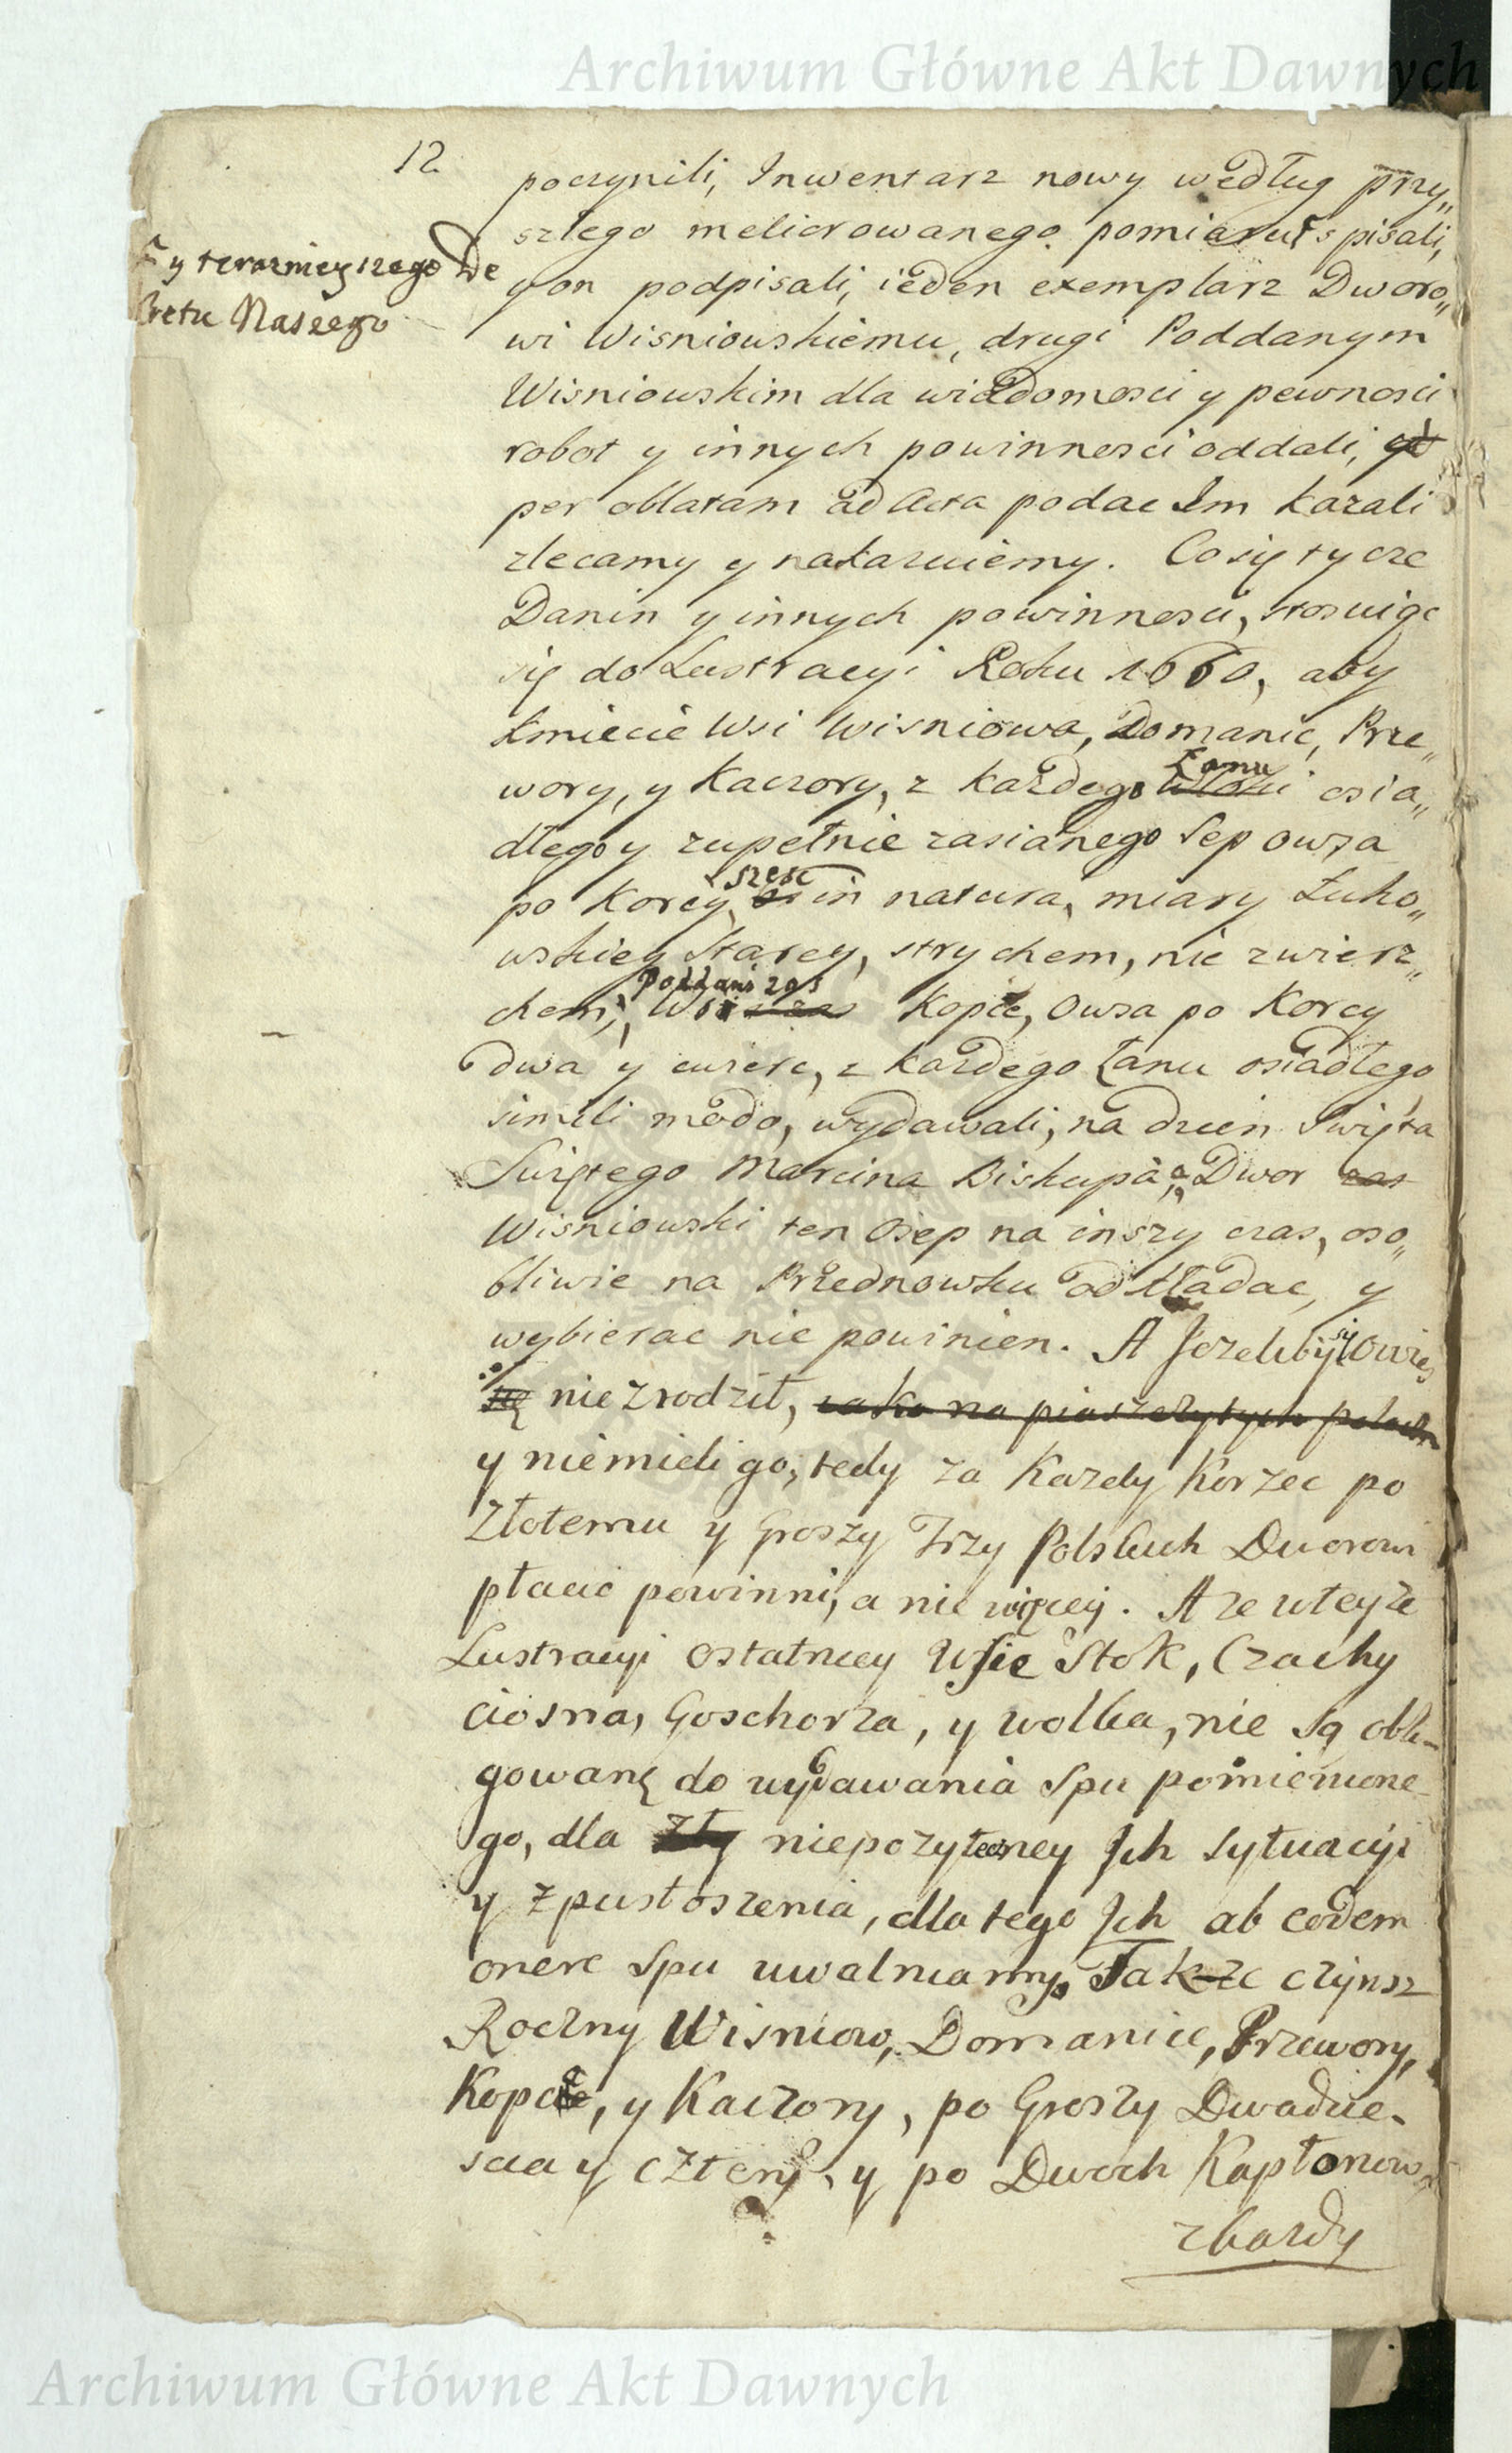 Archiwum Główne Akt Dawnych
12
poczynili, Inwentarz nowy według przy„
szłego meliorowanego pomiaru spisali,
y teraznieyszego De
cretu Naszego
y on podpisali, ieden exemplarz Dworo„
wi Wisniowskiemu, drugi Poddanym
Wisniowskim dla wiadomosci y pewnosci
robot y innych powinnosci oddali,
per oblatam ad Acta podac Im kazali
zlecamy y nakazuiemy. Co się tycze
Danin y innych powinnosci, stosuiąc
się do Lustracyi Roku 1660, aby
kmiecie Wsi Wisniowa, Domanic, Prze„
wory, y Kaczory, z kazdego Łanu osia„
dłego y zupełnie zasianego Sep owsa
po Korcy szesc in natura, miary Łuko„
wskiey Starey, strychem, nie zwierz„
chem, Wsi Poddani zas Kopcie, Owsa po Korcy
dwa y cwierc, z kazdego Łanu osiadłego
simili modo, wydawali, na dzien Swięta
Swiętego Marcina Biskupa, a Dwor zas
Wisniowski ten Osep na inszy czas, oso„
bliwie na Przednowku odkładac, y
wybierac nie powinien. A Jezeliby się Owies
się nie zrodził, iako na piaszczystych polach
y niemieli go, tedy za Kazdy Korzec po
Złotemu y Groszy Trzy Polskich Dworowi
płacic powinni, a nie więcey. A ze wteyze
Lustracyi Ostatniey Wsie Stok, Czachy
Ciosna, Goschorza, y Wolka, nie są obli-
gowanę do wydawania Spu pomienione-
go, dla zły niepozyteczney Ich Sytuacyi
y zpustoszenia, dla tego Ich ab eodem
onere Spu uwalniamy. Takze czynsz
Roczny Wisniow, Domanice, Przewory,
Kopcie, y Kaczory, po Groszy Dwadzie-
scia y Cztery, y po Dwoch Kapłonow,
zkazdy
Archiwum Główne Akt Dawnych